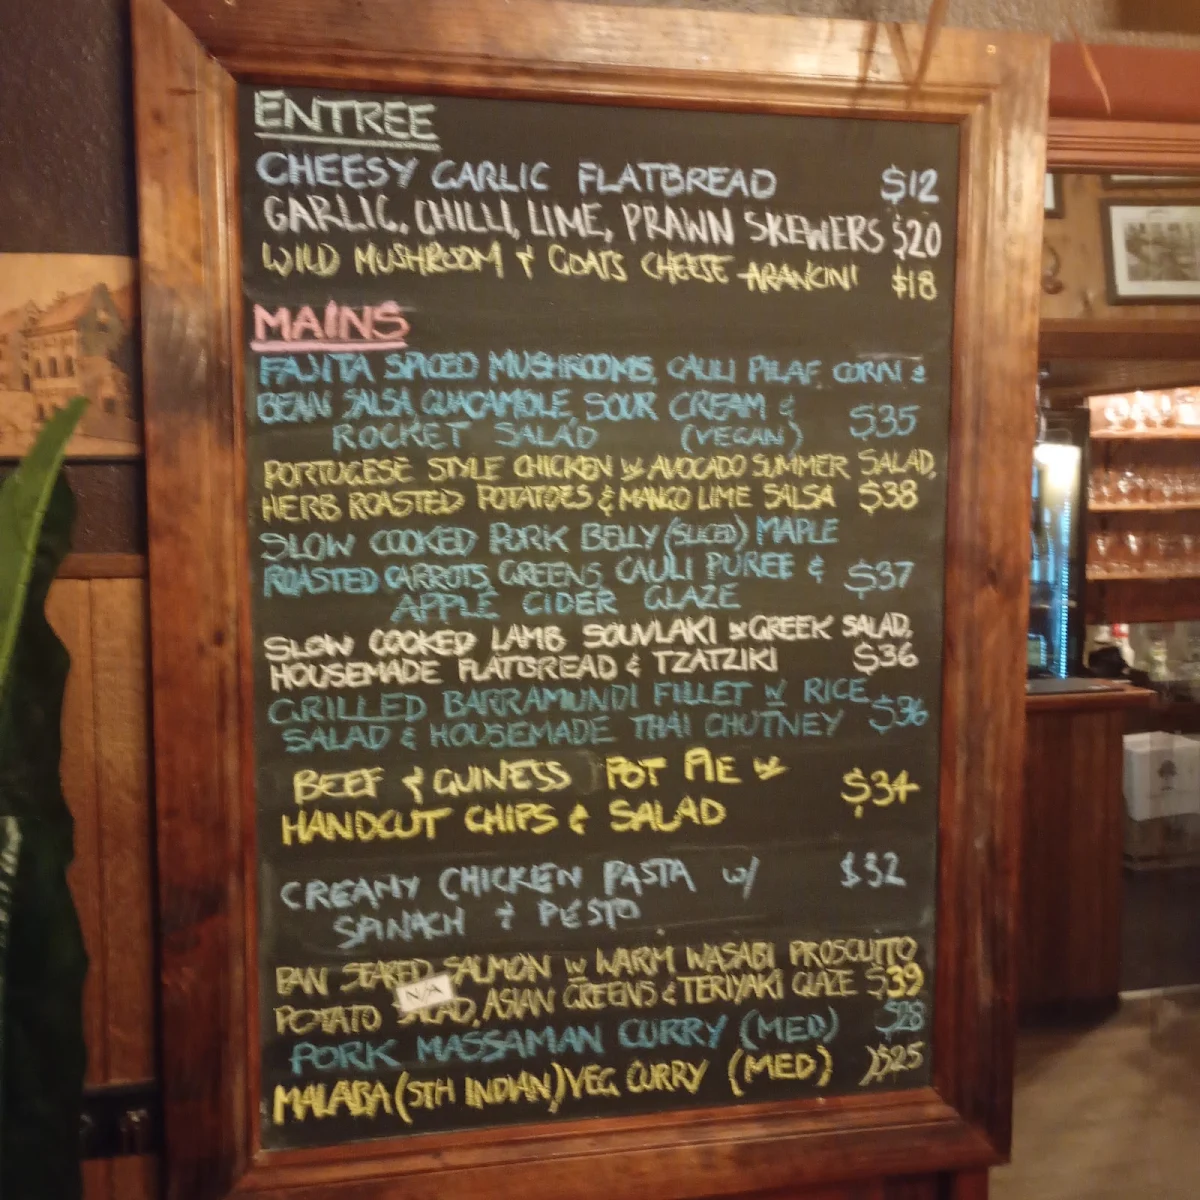 ENTREE
CHEESY GARLIC FLATBREAD $12
GARLIC, CHILLI, LIME, PRAWN SKEWERS $20
WILD MUSHROOM & GOATS CHEESE ARANCINI $18
MAINS
FAJITA SPICED MUSHROOMS, CAULI PILAF, CORN &
BEAN SALSA, GUACAMOLE, SOUR CREAM &
ROCKET SALAD (VEGAN) $35
PORTUGESE STYLE CHICKEN W AVOCADO SUMMER SALAD,
HERB ROASTED POTATOES & MANGO LIME SALSA $38
SLOW COOKED PORK BELLY (SLICED) MAPLE
ROASTED CARROTS, GREENS, CAULI PUREE & $37
APPLE CIDER GLAZE
SLOW COOKED LAMB SOUVLAKI W GREEK SALAD,
HOUSEMADE FLATBREAD & TZATZIKI $36
GRILLED BARRAMUNDI FILLET W RICE $36
SALAD & HOUSEMADE THAI CHUTNEY
BEEF & GUINESS POT PIE W $34
HANDCUT CHIPS & SALAD
CREAMY CHICKEN PASTA W/ $32
SPINACH & PESTO
PAN SEARED SALMON W WARM WASABI PROSCUITTO
POTATO SALAD, ASIAN GREENS & TERIYAKI GLAZE $39
N/A
PORK MASSAMAN CURRY (MED) $28
MALABA (STH INDIAN) VEG CURRY (MED) $25